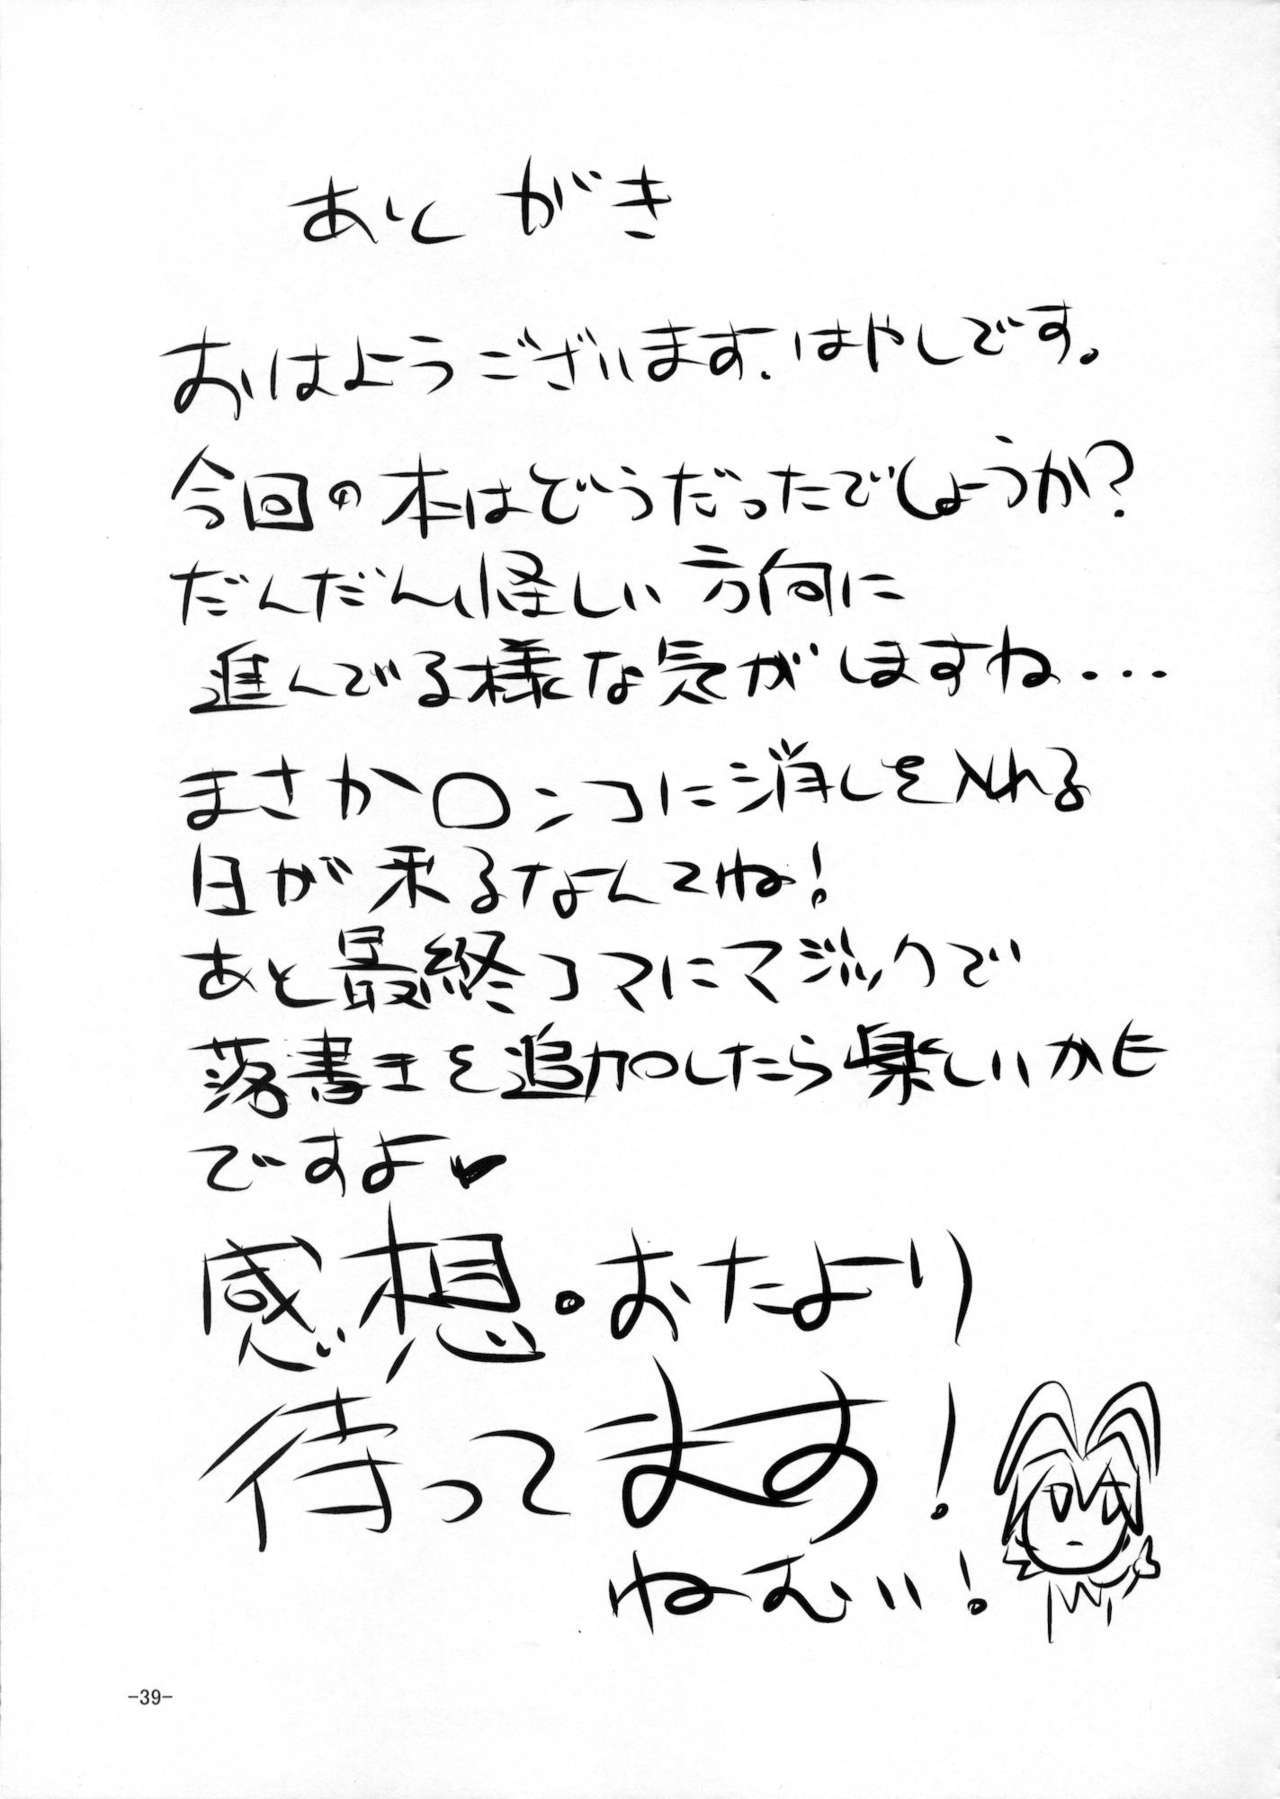 あとがき
おはようございます.はやしです。
今回の本はどうだったでしょうか?
だんだん怪しい方向に
進んでる様な気がしますね...
まさか口ンコに消しを入れる
日が来るなんてね!
あと最終コマにマジックで
落書きを追加したら楽しいかも
ですよ♥
感想・おたより
待ってます!
ねむい!
-39-